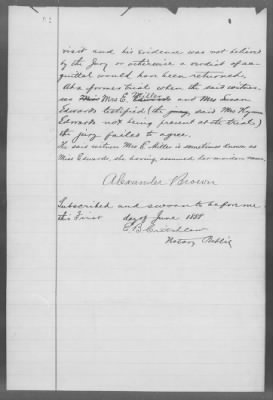 visit and his evidence was not believed
by the Jury or otherwise a verdict of ac-
quittal would have been returned.
At a former trial when the said witness-
es Mrs E. Miller and Mrs Susan
Edwards testified (the said Mrs Hyman
Edwards not being present at the trial)
the jury failed to agree.
The said witness Mrs E. Miller is sometimes known as
Miss Edwards, she having assumed her maiden name.
Alexander Brown
Subscribed and sworn to before me
this First day of June 1888
E. B. Crenshaw
Notary Public